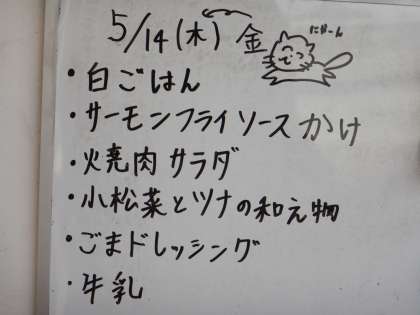 5/14(木) 金
にゃーん
・白ごはん
・サーモンフライソースかけ
・焼肉サラダ
・小松菜とツナの和え物
・ごまドレッシング
・牛乳